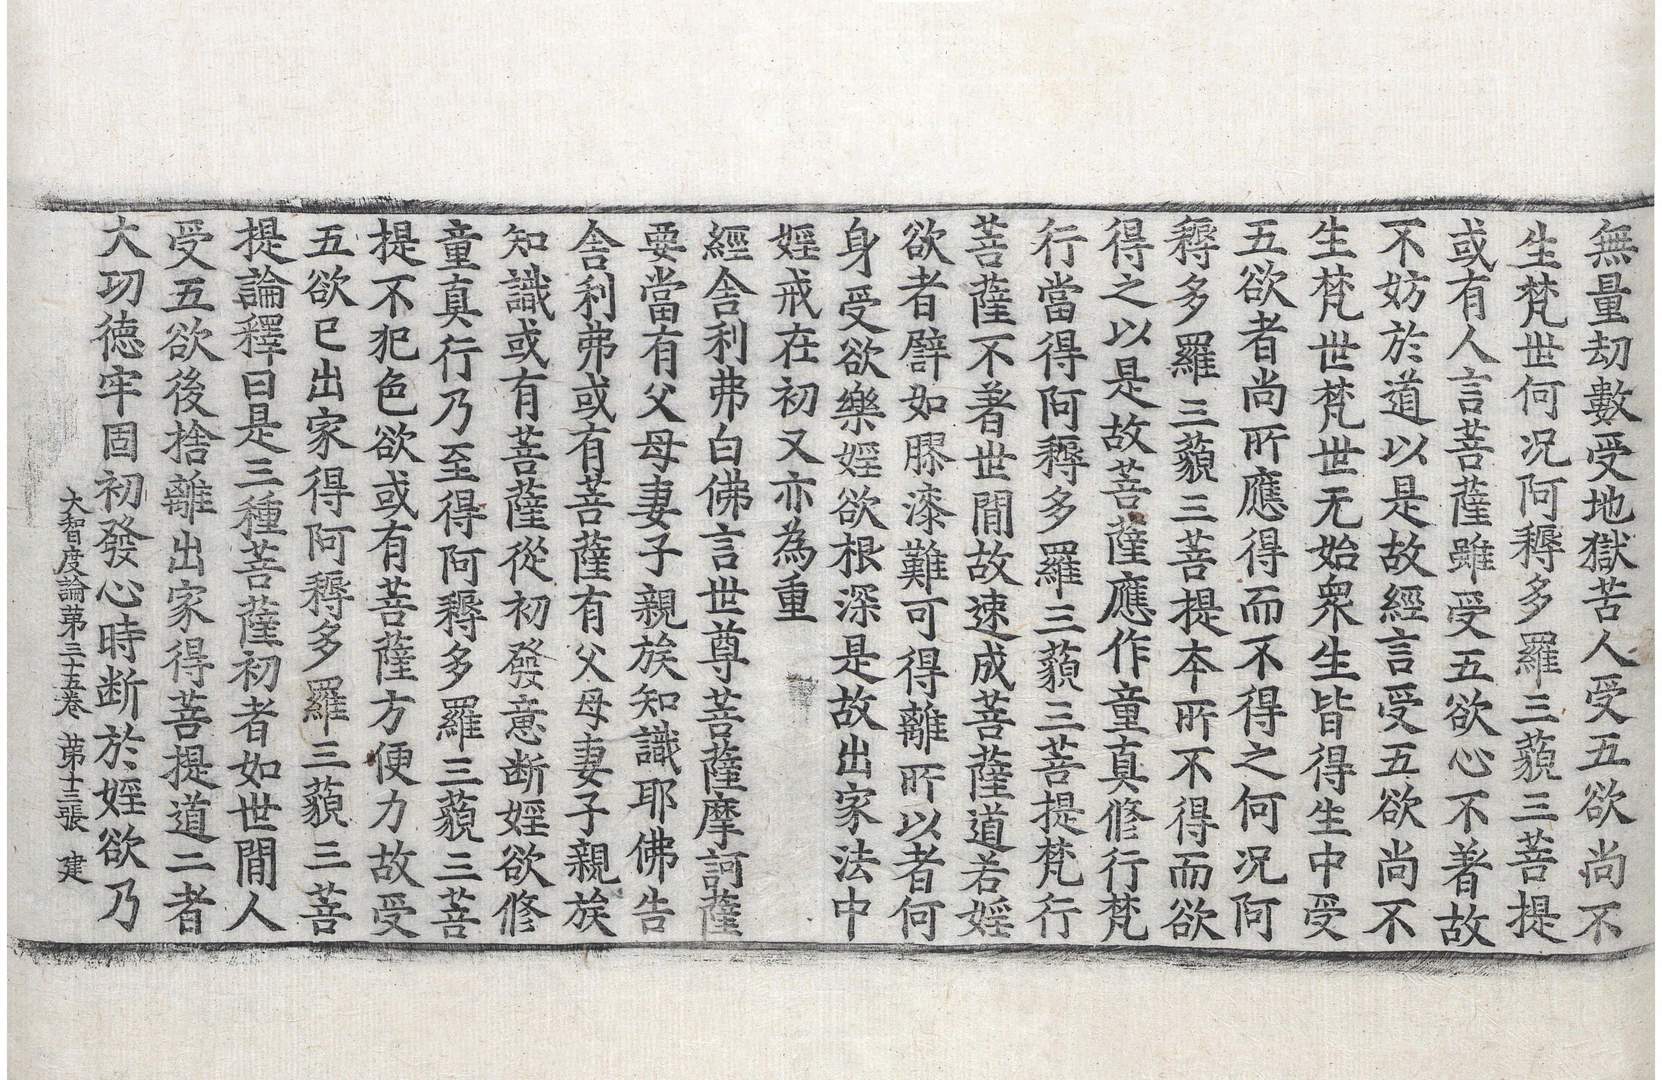 無量劫數受地獄苦人受五欲尚不
生梵世何况阿耨多羅三藐三菩提
或有人言菩薩雖受五欲心不著故
不妨於道以是故經言受五欲尚不
生梵世梵世无始衆生皆得生中受
五欲者尚所應得而不得之何况阿
耨多羅三藐三菩提本所不得而欲
得之以是故菩薩應作童真修行梵
行當得阿耨多羅三藐三菩提梵行
菩薩不著世間故速成菩薩道若婬
欲者譬如膠漆難可得離所以者何
身受欲樂婬欲根深是故出家法中
婬戒在初又亦為重
經舍利弗白佛言世尊菩薩摩訶薩
要當有父母妻子親族知識耶佛告
舍利弗或有菩薩有父母妻子親族
知識或有菩薩從初發意断婬欲修
童真行乃至得阿耨多羅三藐三菩
提不犯色欲或有菩薩方便力故受
五欲已出家得阿耨多羅三藐三菩
提論釋曰是三種菩薩初者如世間人
受五欲後捨離出家得菩提道二者
大功德牢固初發心時断於婬欲乃
大智度論苐三十五卷 苐十三張 建